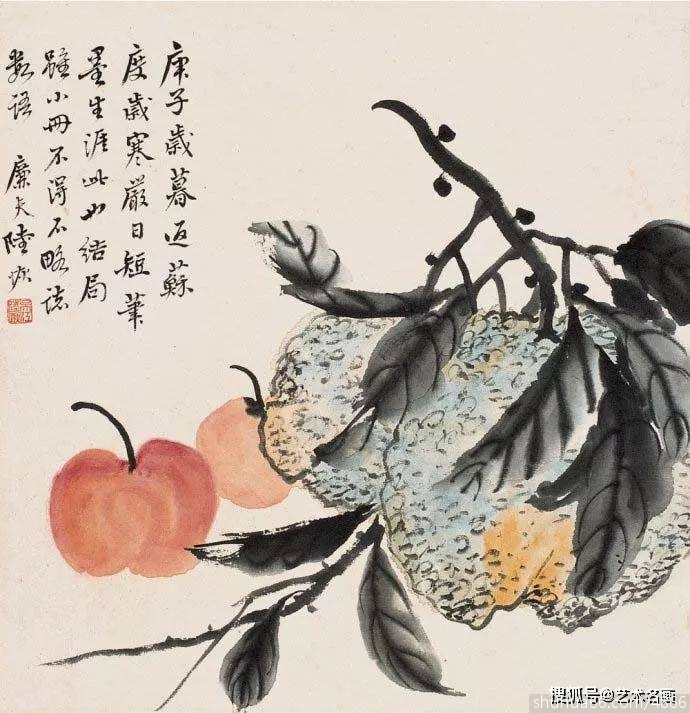 庚子歲暮返蘇
度歲寒嚴日短筆
墨生涯此為結局
雖小冊不得不略誌
數語 廉夫陸恢
搜狐号@艺术名画
shuhua66.com/4866